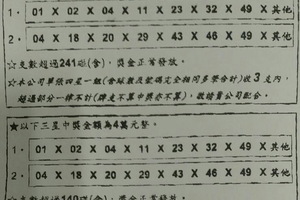 1. 01 X 02 X 04 X 11 X 23 X 32 X 49 X 其他
2. 04 X 18 X 20 X 29 X 32 X 46 X 49 X 其他
☆支數超過241碰(含),獎金正常發放。
☆本公司單張四星一組(含球數及號碼完全相同多臂合計)收3支內,
超過部分一律不計(牌支不算中獎亦不算),敬請貴公司配合。
★以下三星中獎金額為4萬元整。
1. 01 X 02 X 04 X 11 X 23 X 32 X 49 X 其他
2. 04 X 18 X 20 X 29 X 32 X 46 X 49 X 其他
☆支數超過140碰(含),獎金正常發放。